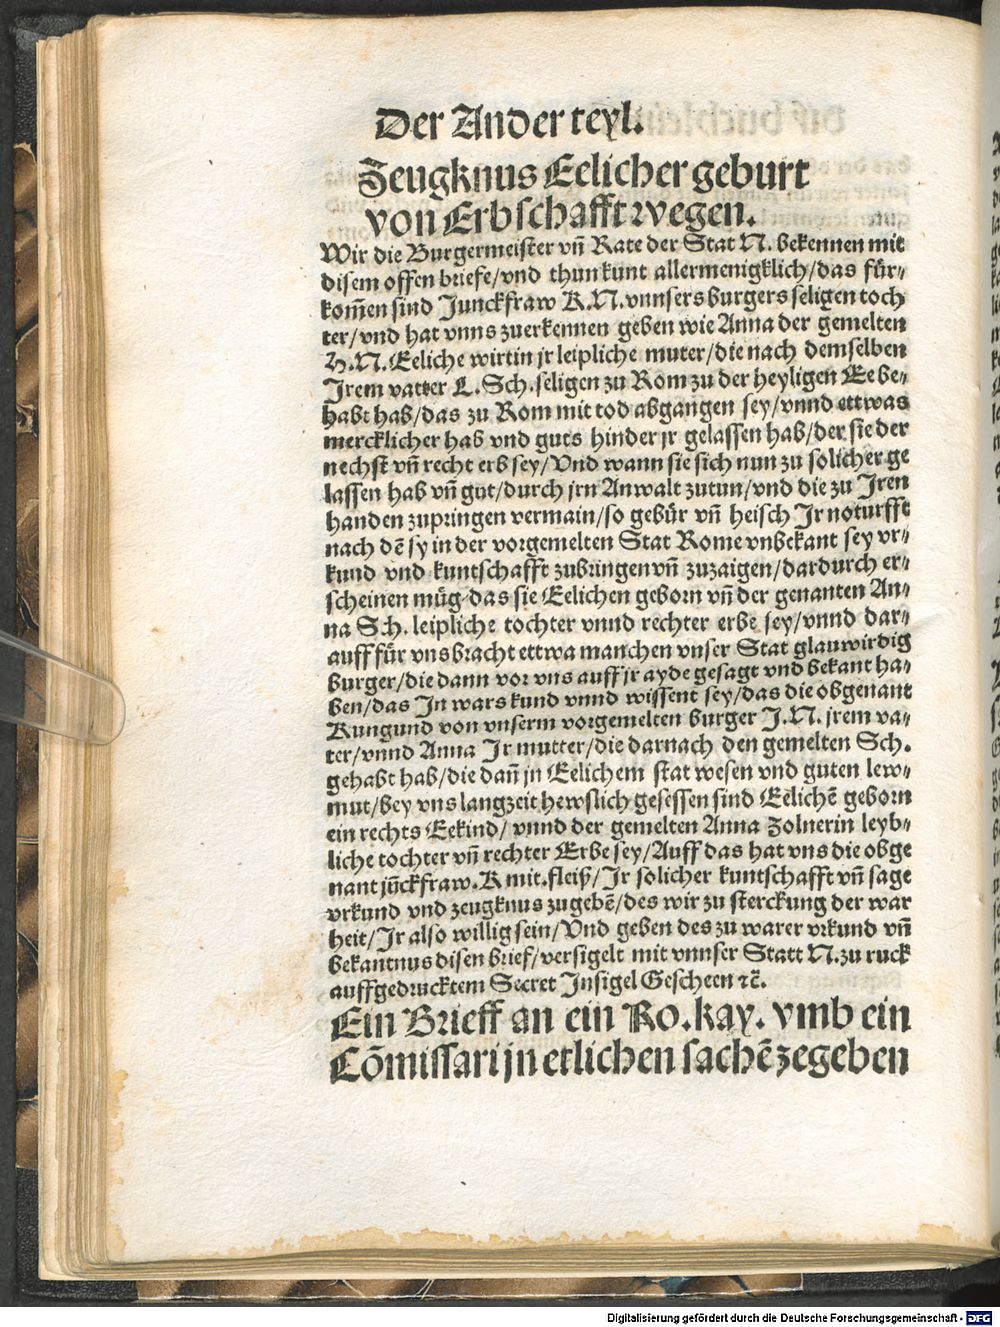 Der Ander teyl.
Zeugknus Eelicher geburt
von Erbschafft wegen.
Wir die Burgermeister vñ Rate der Stat N. bekennen mit
disem offen briefe/vnd thun kunt allermenigklich/das für⸗
kom̃en sind Junckfraw K.N.vnnsers burgers seligen toch
ter/vnd hat vnns zuerkennen geben wie Anna der gemelten
H.N. Eeliche wirtin jr leipliche muter/die nach demselben
Jrem vatter L. Sch. seligen zu Rom zu der heyligen Ee be⸗
habt hab/das zu Rom mit tod abgangen sey/vnnd ettwas
mercklicher hab vnd guts hinder jr gelassen hab/der sie der
nechst vñ recht erb sey/Vnd wann sie sich nun zu solicher ge
lassen hab vñ gut/durch jrn Anwalt zutun/vnd die zu Jren
handen zupringen vermain/so gebür vñ heisch Jr noturfft
nach dē sy in der vorgemelten Stat Rome vnbekant sey vr⸗
kund vnd kuntschafft zubringen vñ zuzaigen/dardurch er⸗
scheinen müg das sie Eelichen geborn vñ der genanten An⸗
na Sch. leipliche tochter vnnd rechter erbe sey/vnnd dar⸗
auff für vns bracht ettwa manchen vnser Stat glauwirdig
burger/die dann vor vns auff jr ayde gesagt vnd bekant ha⸗
ben/das Jn wars kund vnnd wissent sey/das die obgenant
Kungund von vnserm vorgemelten burger J.N. jrem va⸗
ter/vnnd Anna Jr mutter/die darnach den gemelten Sch.
gehabt hab/die dañ jn Eelichem stat wesen vnd guten lew⸗
mut/bey vns langzeit hewslich gesessen sind Eelichē geborn
ein rechts Eekind/ vnnd der gemelten Anna Zolnerin leyb⸗
liche tochter vñ rechter Erbe sey/Auff das hat vns die obge
nant jūckfraw.K mit.fleiß/Jr solicher kuntschafft vñ sage
vrkund vnd zeugknus zugebē/des wir zu sterckung der war
heit/Jr also willig sein/Vnd geben des zu warer vrkund vñ
bekantnus disen brief/versigelt mit vnnser Statt N.zu ruck
auffgedrucktem Secret Jnsigel Gescheen ⁊c̃.
Ein Brieff an ein Ro.kay. vmb ein
Cōmissari jn etlichen sachē zegeben
Digitalisierung gefördert durch die Deutsche Forschungsgemeinschaft - DFG